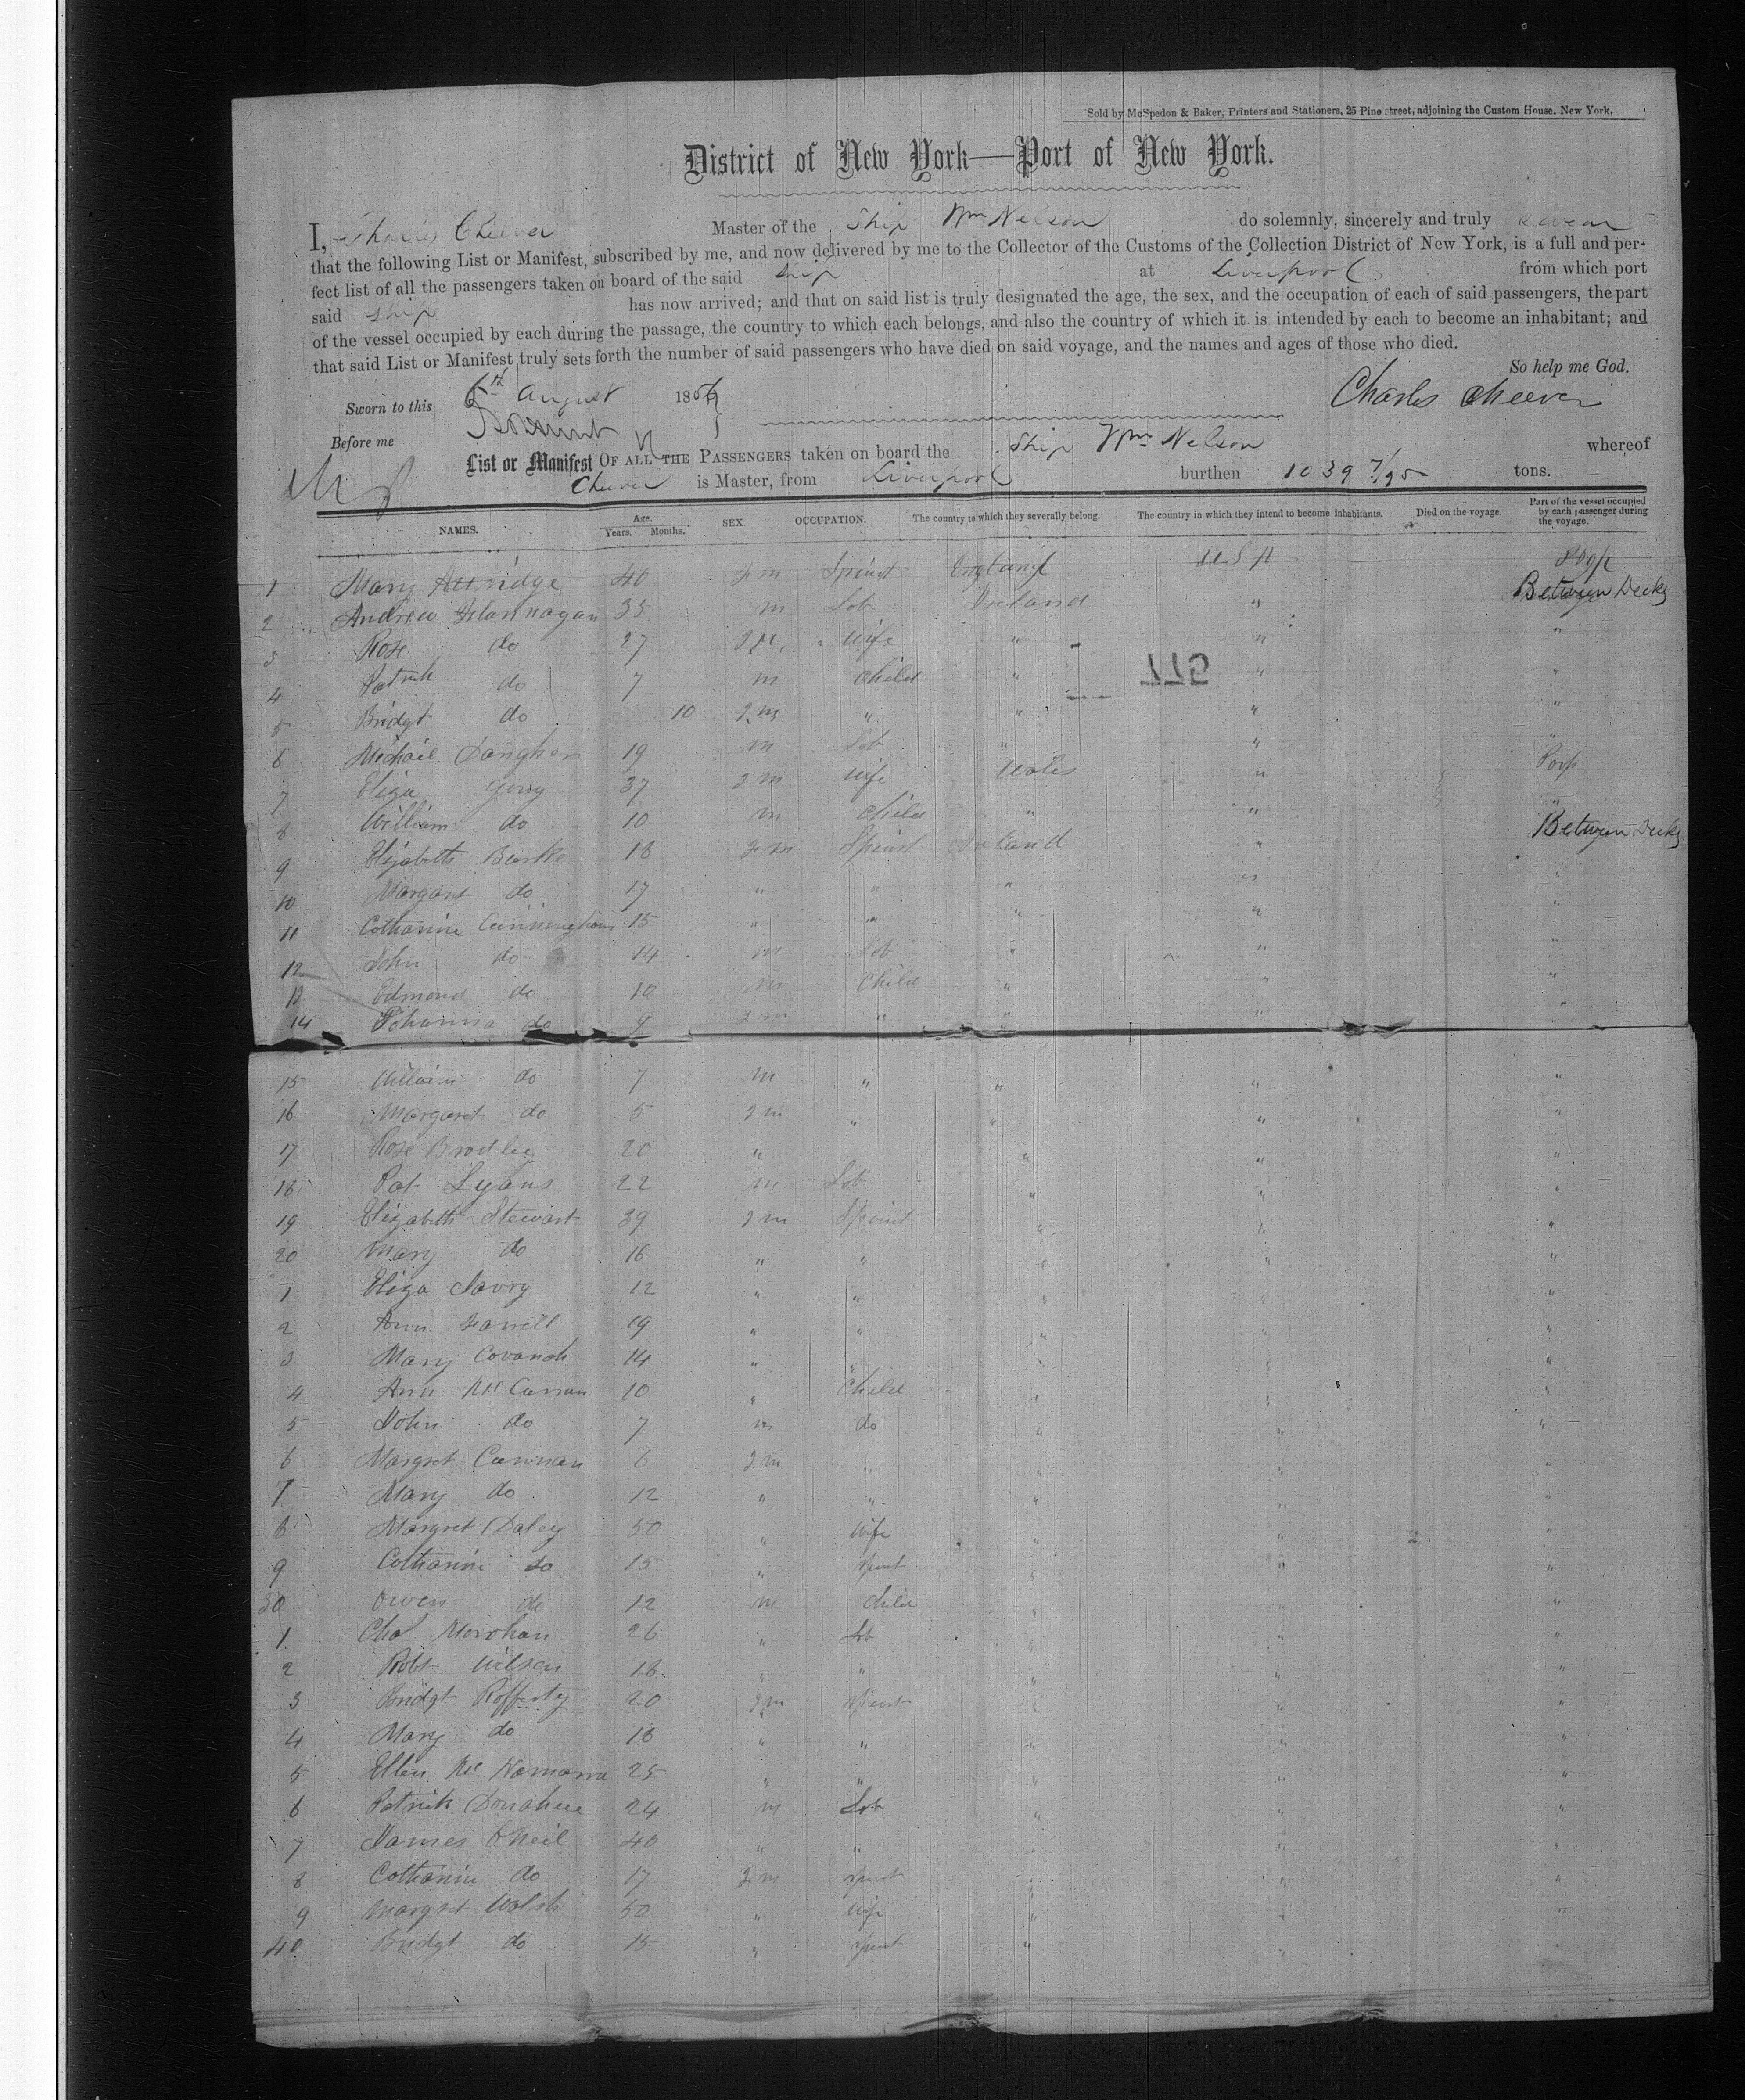 Sold by McSpedon & Baker, Printers and Stationers, 25 Pine street, adjoining the Custom House, New York.
District of New York—Port of New York.
I, Charles Cheever Master of the Ship Wm Nelson do solemnly, sincerely and truly swear
that the following List or Manifest, subscribed by me, and now delivered by me to the Collector of the Customs of the Collection District of New York, is a full and per-
fect list of all the passengers taken on board of the said ship at Liverpool from which port
said ship has now arrived; and that on said list is truly designated the age, the sex, and the occupation of each of said passengers, the part
of the vessel occupied by each during the passage, the country to which each belongs, and also the country of which it is intended by each to become an inhabitant; and
that said List or Manifest truly sets forth the number of said passengers who have died on said voyage, and the names and ages of those who died.
So help me God.
Sworn to this 6th August 185 Charles Cheever
Before me
List or Manifest OF ALL THE PASSENGERS taken on board the Ship Wm Nelson whereof
Cheever is Master, from Liverpool burthen 1039 7/95 tons.
NAMES. Age. Years. Months. SEX. OCCUPATION. The country to which they severally belong. The country in which they intend to become inhabitants. Died on the voyage. Part of the vessel occupied by each passenger during the voyage.
1 Mary Attridge 40 fm Spinst England U S A Poop
2 Andrew Flannagan 35 m Lab Ireland " Between Decks
3 Rose do 27 fm wife " " "
4 Patrick do 7 m child " " "
5 Bridgt do 10 fm " " " "
6 Michael 19 m Lab " " "
7 Eliza 37 fm wife Wales " Poop
8 William do 10 m child " " "
9 Elizabeth Burke 18 fm Spinst Ireland " Between Decks
10 Margaret do 17 " " " " "
11 Catharine Cunningham 15 " " " " "
12 John do 14 m Lab " " "
13 Edmond do 10 m child " " "
14 Johanna do 9 fm " " " "
15 William do 7 m " " " "
16 Margaret do 5 fm " " " "
17 Rose Bradley 20 " " " "
18 Pat Lyons 22 m Lab " " "
19 Elizabeth Stewart 39 fm Spinst " " "
20 Mary do 16 " " " " "
1 Eliza Savry 12 " " " " "
2 Ann Farrell 19 " " " " "
3 Mary Covanah 14 " " " " "
4 Ann McCarran 10 " child " " "
5 John do 7 m do " " "
6 Margret 6 fm " " " "
7 Mary do 12 " " " " "
8 Margret Daley 50 " wife " " "
9 Catharine do 15 " spinst " " "
30 Owen do 12 m child " " "
1 Chas 26 " Lab " " "
2 Robt Wilson 18 " " " " "
3 Bridgt Rafferty 20 fm spinst " " "
4 Mary do 18 " " " " "
5 Ellen McNamara 25 " " " " "
6 Patrick Donahue 24 m Lab " " "
7 James ONeil 40 " " " " "
8 Catharine do 17 fm spinst " " "
9 Margret Walsh 50 " wife " " "
40 Bridgt do 15 " spinst " " "